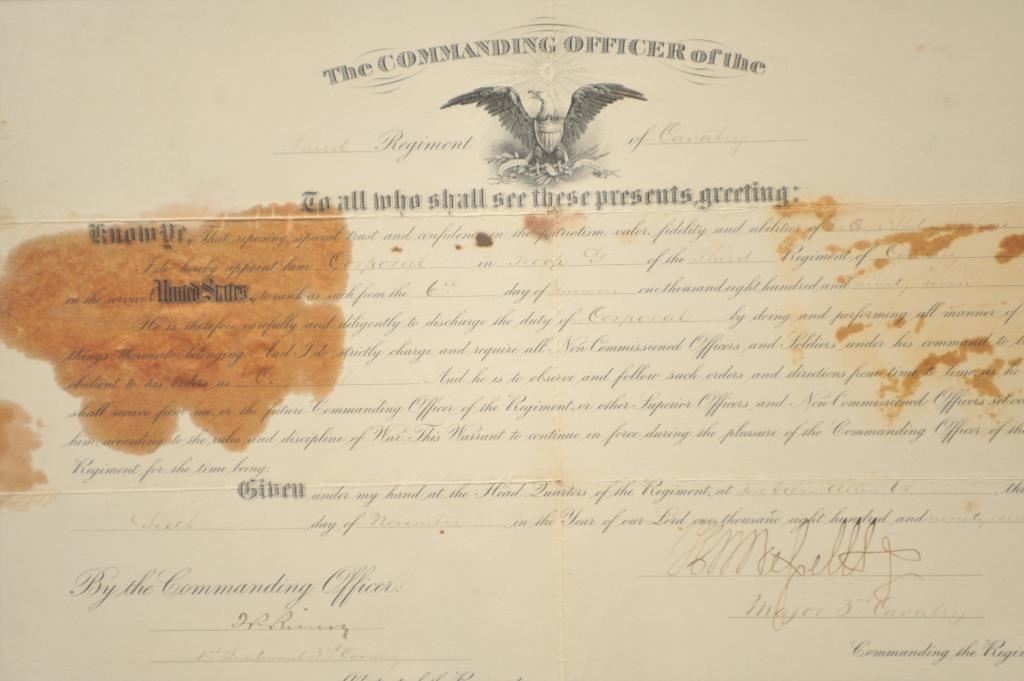 The COMMANDING OFFICER of the
Third Regiment of Cavalry
To all who shall see these presents, greeting:
Know Ye, That reposing special trust and confidence in the patriotism, valor, fidelity and abilities of
I do hereby appoint him Corporal in Troop G of the Third Regiment of Cavalry
in the service United States, to rank as such from the 6th day of November one thousand eight hundred and ninety seven
He is therefore carefully and diligently to discharge the duty of Corporal by doing and performing all manner of
things thereunto belonging. And I do strictly charge and require all Non Commissioned Officers and Soldiers under his command to be
obedient to his orders as Corporal And he is to observe and follow such orders and directions from time to time as he
shall receive from me, or the future Commanding Officer of the Regiment, or other Superior Officers and Non Commissioned Officers set over
him, according to the rules and discipline of War. This Warrant to continue in force during the pleasure of the Commanding Officer of the
Regiment for the time being.
Given under my hand at the Head Quarters of the Regiment, at Fort Ethan Allen Vt, this
Sixth day of November in the Year of our Lord one thousand eight hundred and ninety seven
By the Commanding Officer:
Major 3rd Cavalry
1st Lieutenant 3rd Cavalry
Commanding the Regi